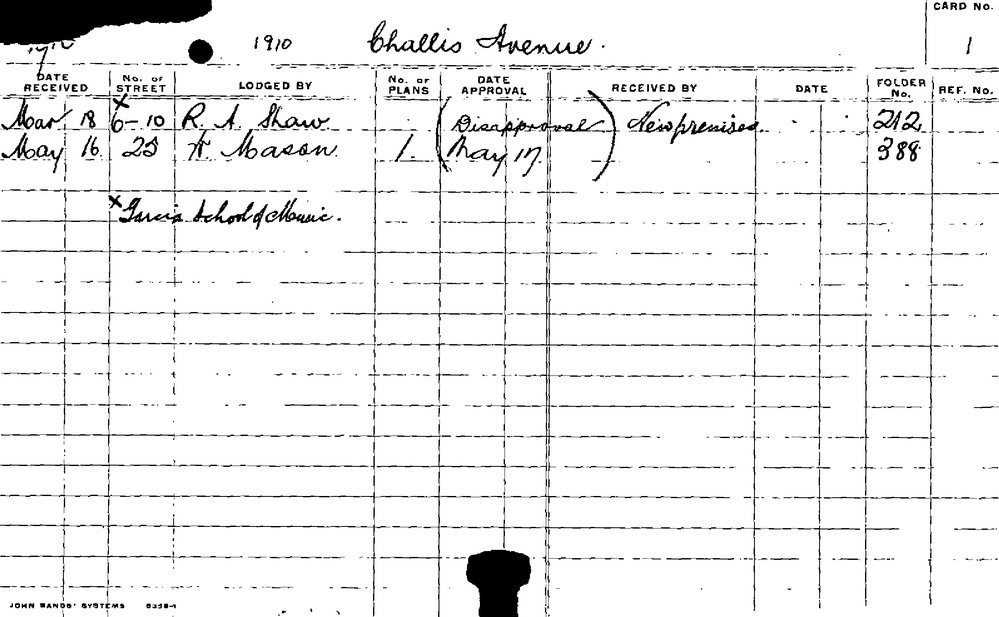 CARD No.
1910 Challis Avenue. 1
DATE RECEIVED No. of STREET LODGED BY No. of PLANS DATE APPROVAL RECEIVED BY DATE FOLDER No. REF. No.
Mar 18 x 6-10 R. A. Shaw (Disapproval) New premises. 212
May 16 25 Mason. 1. (May 17.) 388
x Garcia School of Music.
JOHN SANDS' SYSTEMS